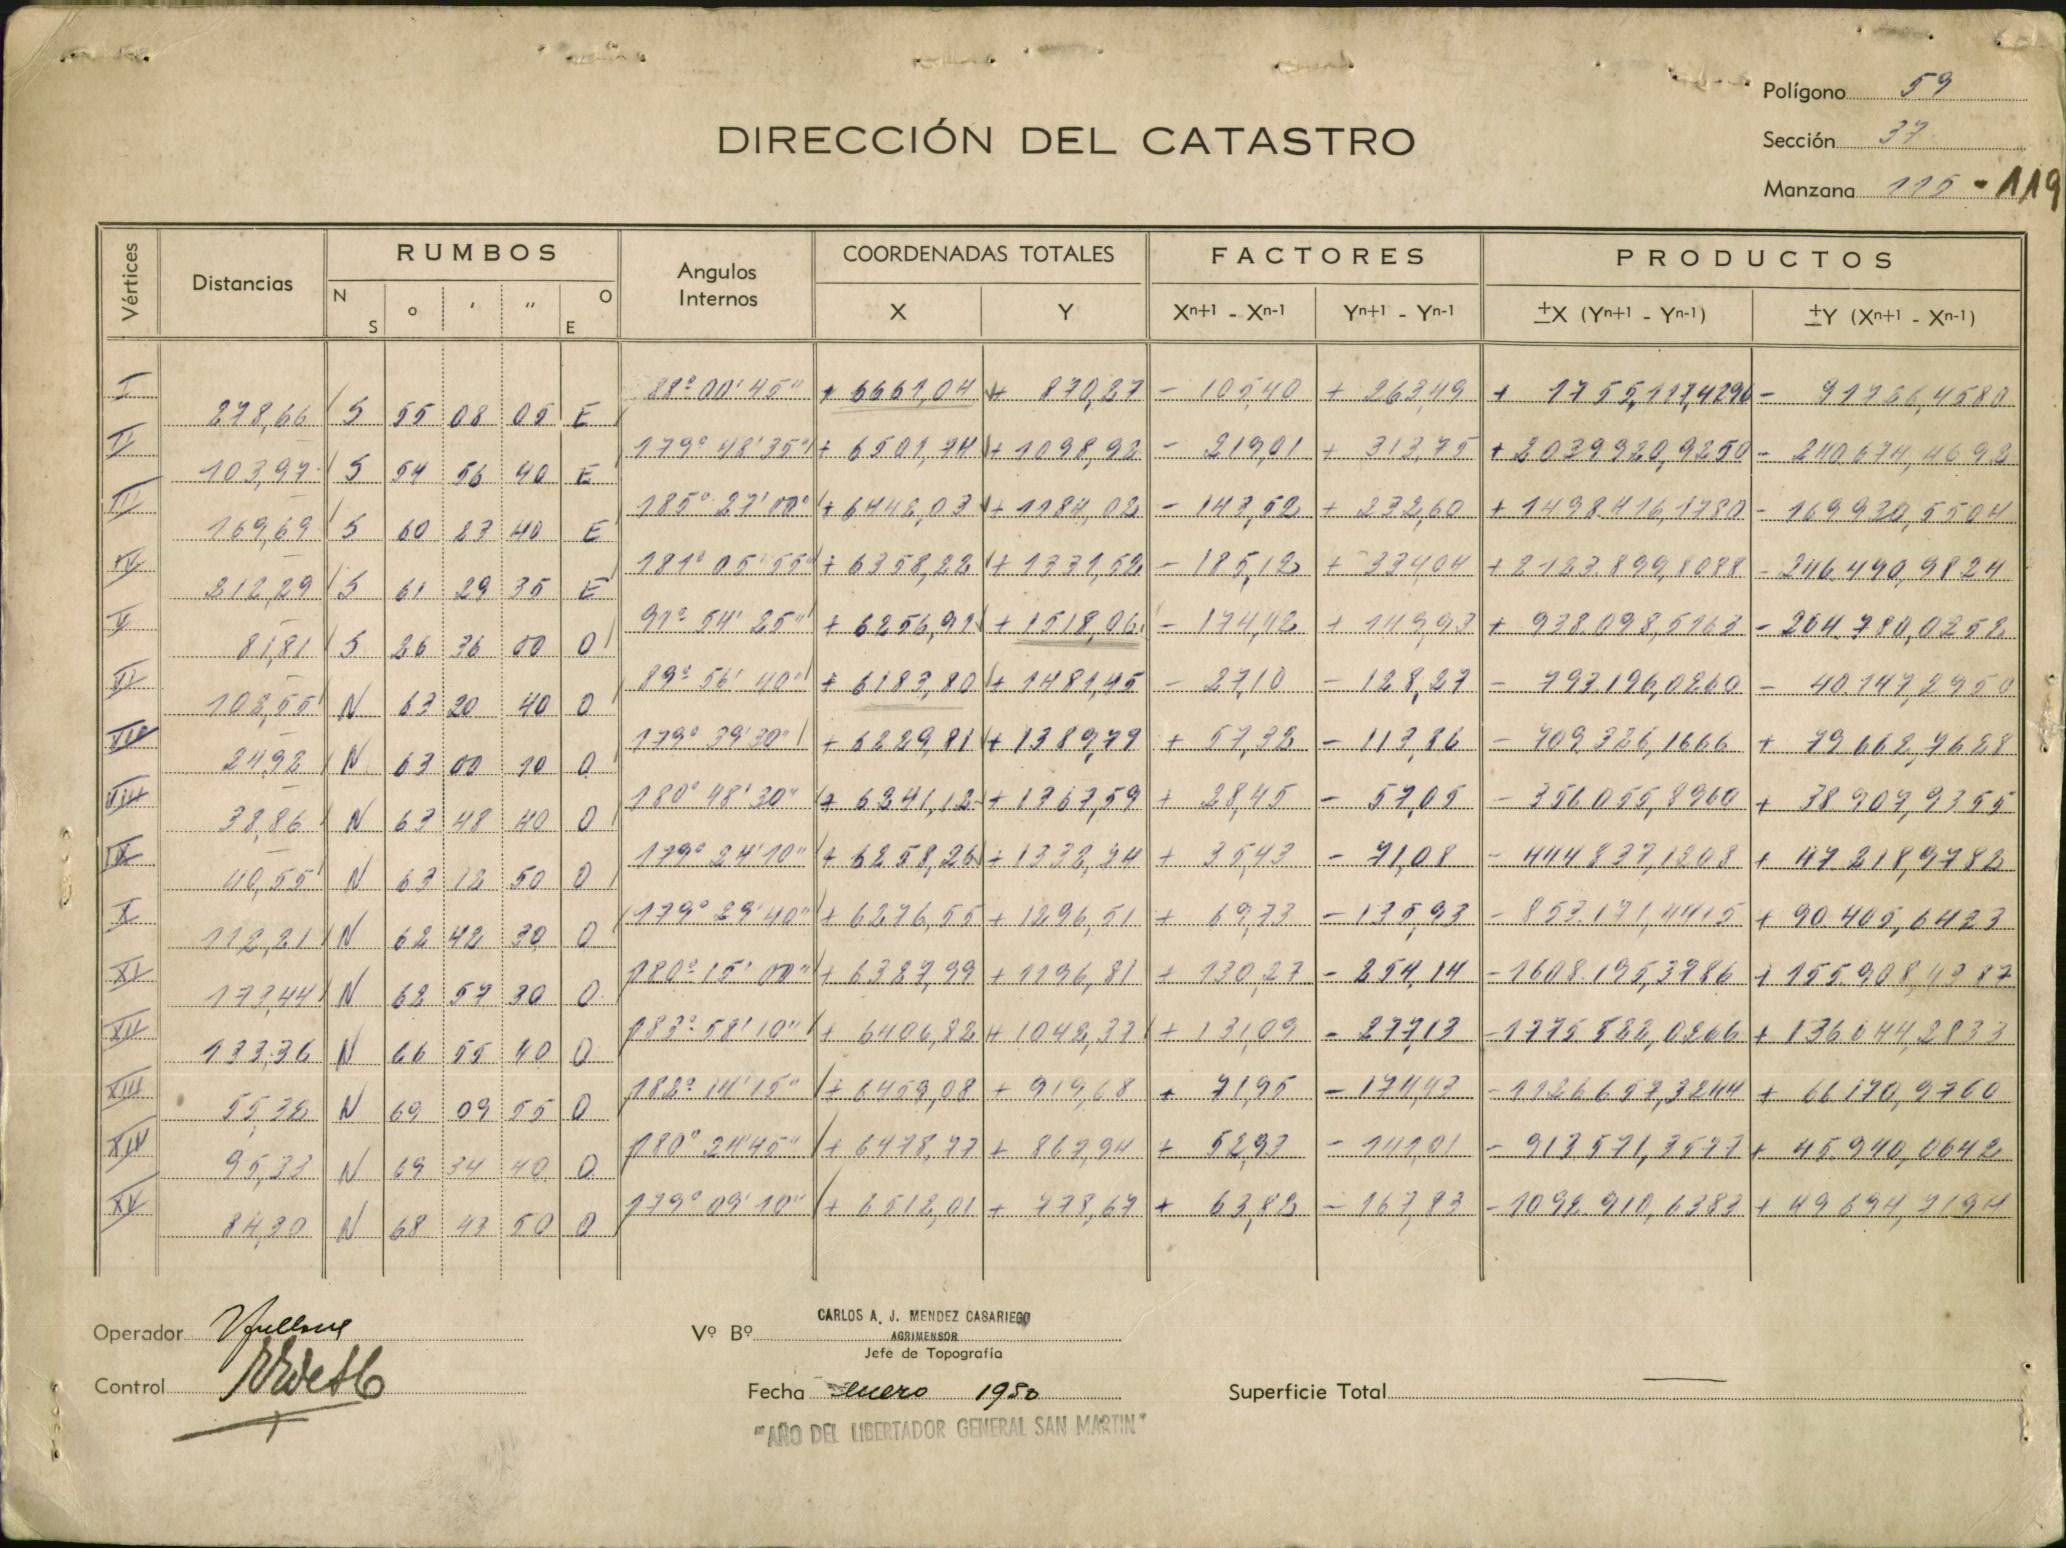 Polígono 59
DIRECCIÓN DEL CATASTRO
Sección 37
Manzana 115 - 119
Vértices Distancias RUMBOS Angulos Internos COORDENADAS TOTALES FACTORES PRODUCTOS
N S ° ' " O E X Y Xn+1 - Xn-1 Yn+1 - Yn-1 ±X (Yn+1 - Yn-1) ±Y (Xn+1 - Xn-1)
I 88° 00' 45" + 6661,04 + 870,27 - 105,40 + 263,49 + 1755,117,4296 - 91726,4580
278,66 S 55 08 05 E
II 179° 48' 35" + 6501,74 + 1098,92 - 219,01 + 313,75 + 2039920,9250 - 240.674,4692
103,97 S 54 56 40 E
III 185° 27' 00" + 6442,03 + 1184,02 - 143,52 + 232,60 + 1498.416,1780 - 169930,5504
169,69 S 60 23 40 E
IV 181° 05' 55" + 6358,22 + 1331,52 - 185,12 + 334,04 + 2123.899,8088 - 246.490,9824
212,29 S 61 29 35 E
V 91° 54' 25" + 6256,91 + 1518,06 - 174,42 + 149,93 + 938.098,5163 - 264.780,0252
81,81 S 26 36 00 O
VI 89° 56' 40" + 6183,80 + 1481,45 - 27,10 - 128,27 - 793196,0260 - 40147,2950
102,55 N 63 20 40 O
VII 179° 39' 30" + 6229,81 + 1389,79 + 57,32 - 113,86 - 709.326,1666 + 79662,7628
24,92 N 63 00 10 O
VIII 180° 48' 30" + 6241,12 + 1367,59 + 28,45 - 57,05 - 356055,8960 + 38907,9355
38,86 N 63 48 40 O
IX 179° 24' 10" + 6258,26 + 1332,74 + 35,43 - 71,08 - 444837,1208 + 47.218,9782
40,55 N 63 12 50 O
X 179° 29' 40" + 6276,55 + 1296,51 + 69,73 - 135,93 - 853.171,4415 + 90.405,6423
112,21 N 62 42 30 O
XI 180° 15' 00" + 6327,99 + 1196,81 + 130,27 - 254,14 - 1608.195,3786 + 155.908,4387
173,44 N 62 57 30 O
XII 183° 58' 10" + 6406,82 + 1042,37 + 131,09 - 277,13 - 1775522,0266 + 136644,2833
133,36 N 66 55 40 O
XIII 182° 14' 15" + 6459,08 + 919,68 + 71,95 - 174,43 - 1126657,3244 + 66170,9760
55,36 N 69 09 55 O
XIV 180° 24' 45" + 6478,77 + 867,94 + 52,93 - 141,01 - 913571,3577 + 45.940,0642
95,33 N 69 34 40 O
XV 179° 09' 10" + 6512,01 + 778,67 + 63,82 - 167,83 - 1092.910,6383 + 49694,7194
84,30 N 68 43 50 O
Operador
Vº Bº CARLOS A. J. MENDEZ CASARIEGO
AGRIMENSOR
Jefe de Topografía
Control
Fecha enero 1950
Superficie Total
"AÑO DEL LIBERTADOR GENERAL SAN MARTIN"